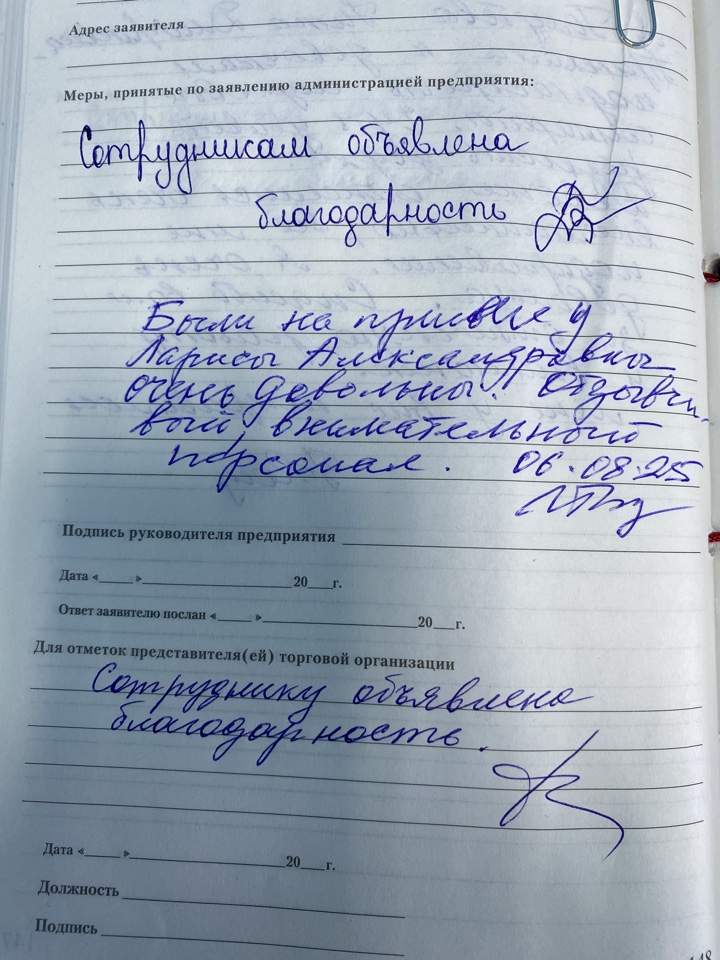 Адрес заявителя
Меры, принятые по заявлению администрацией предприятия:
Сотрудникам объявлена
благодарность
Были на приёме у
Ларисы Александровны
очень довольны! Отзывчи-
вый, внимательный
персонал. 06.08.25
Подпись руководителя предприятия
Дата «_____ »____________________20___г.
Ответ заявителю послан «_____ »____________________20___г.
Для отметок представителя(ей) торговой организации
Сотруднику объявлена
благодарность.
Дата «_____ »____________________20___г.
Должность
Подпись